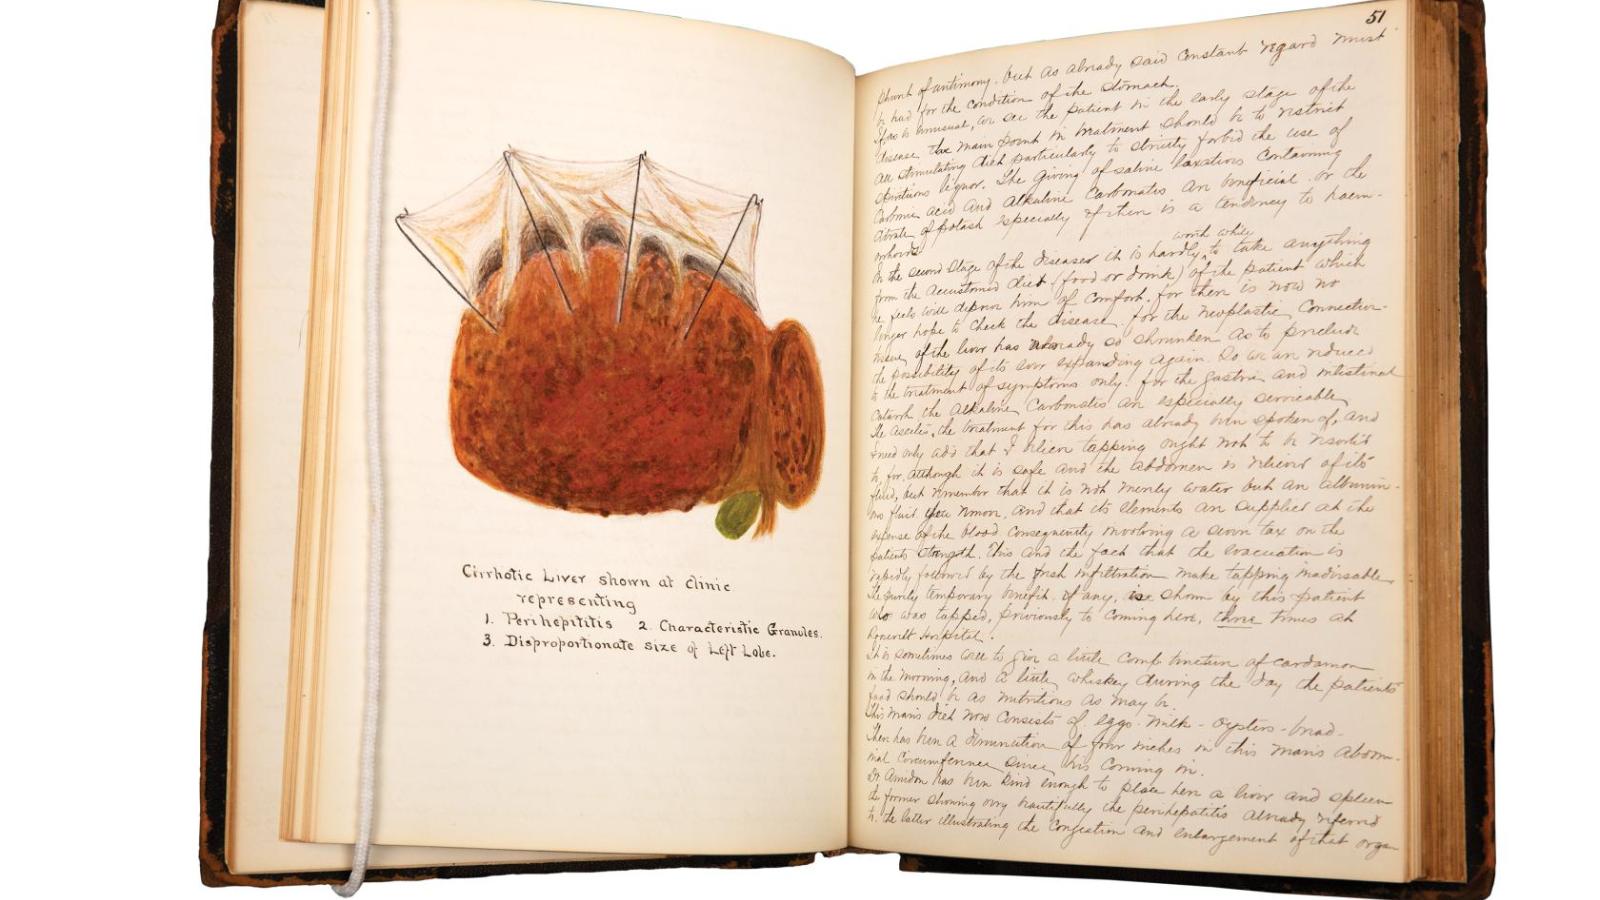 Cirrhotic Liver shown at clinic
representing
1. Perihepititis 2. Characteristic Granules.
3. Disproportionate size of Left Lobe.
51
of antimony. but as already said Constant regard must
be had for the condition of the stomach.
unusual, we see the patient in the early stage of the
disease the main point in treatment should be to restrict
all stimulating diet particularly to strictly forbid the use of
liquor. The giving of saline laxatives Containing
Carbonic acid and alkaline Carbonates are beneficial. or the
Citrate of potash especially if there is a tendency to haem-
orrhoids
worth while
In the second stage of the disease it is hardly to take anything
from the accustomed diet (food or drink) of the patient which
he feels will deprive him of comfort, for there is now no
longer hope to check the disease. for the neoplastic connective-
tissue of the liver has already so shrunken as to preclude
the possibility of its ever expanding again. So we are reduced
to the treatment of symptoms only. for the gastric and intestinal
Catarrh the alkaline Carbonates are especially serviceable
The ascites, the treatment for this has already been spoken of, and
I need only add that I believe tapping ought not to be resorted
to, for although it is safe and the abdomen is relieved of its
fluid, but remember that it is not merely water but an albumin-
ous fluid you remove, and that its elements are supplied at the
expense of the blood consequently involving a severe tax on the
patients strength. This and the fact that the evacuation is
rapidly followed by the fresh infiltration make tapping inadvisable
The purely temporary benefit, if any, is shown by this patient
who was tapped, previously to coming here, three times at
Roosevelt Hospital.
It is sometimes well to give a little Comp tincture of cardamon
in the morning, and a little whiskey during the day the patients
food should be as nutritious as may be.
This mans diet now consists of eggs - milk - oysters - bread -
There has been a diminution of four inches in this mans abdom-
inal circumference since his coming in.
Dr Amidon has been kind enough to place here a liver and spleen
the former showing very beautifully the perihepatitis already referred
to. the latter illustrating the Congestion and enlargement of that organ